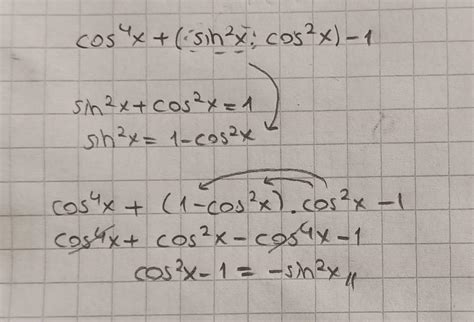 cos⁴x + (sin²x . cos²x) - 1
sin²x + cos²x = 1
sin²x = 1 - cos²x
cos⁴x + (1 - cos²x) . cos²x - 1
cos⁴x + cos²x - cos⁴x - 1
cos²x - 1 = -sin²x //